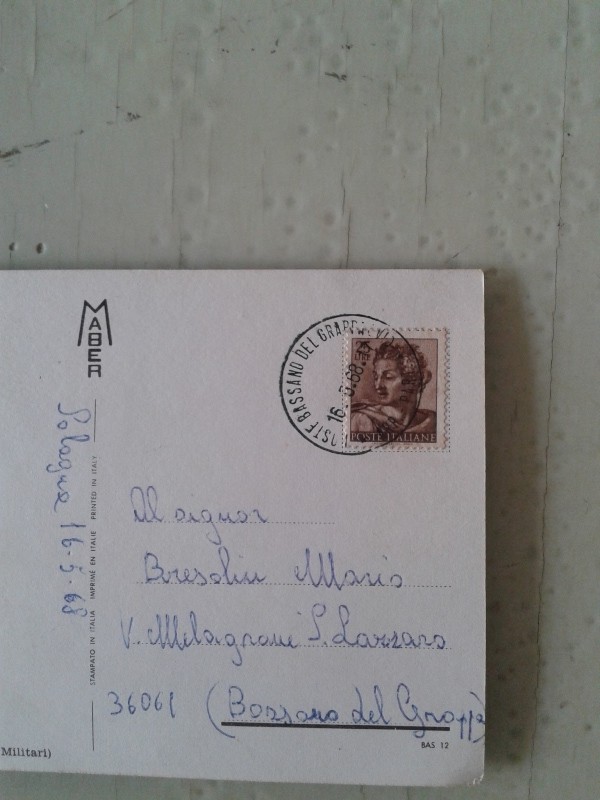 MABER
POSTE BASSANO DEL GRAPPA
16.5.68
POSTE ITALIANE
Solagna 16-5-68
STAMPATO IN ITALIA IMPRIMÉ EN ITALIE PRINTED IN ITALY
Al signor
Bresolin Mario
V. Melagrani S. Lazzaro
36061 (Bassano del Grappa)
BAS 12
Militari)